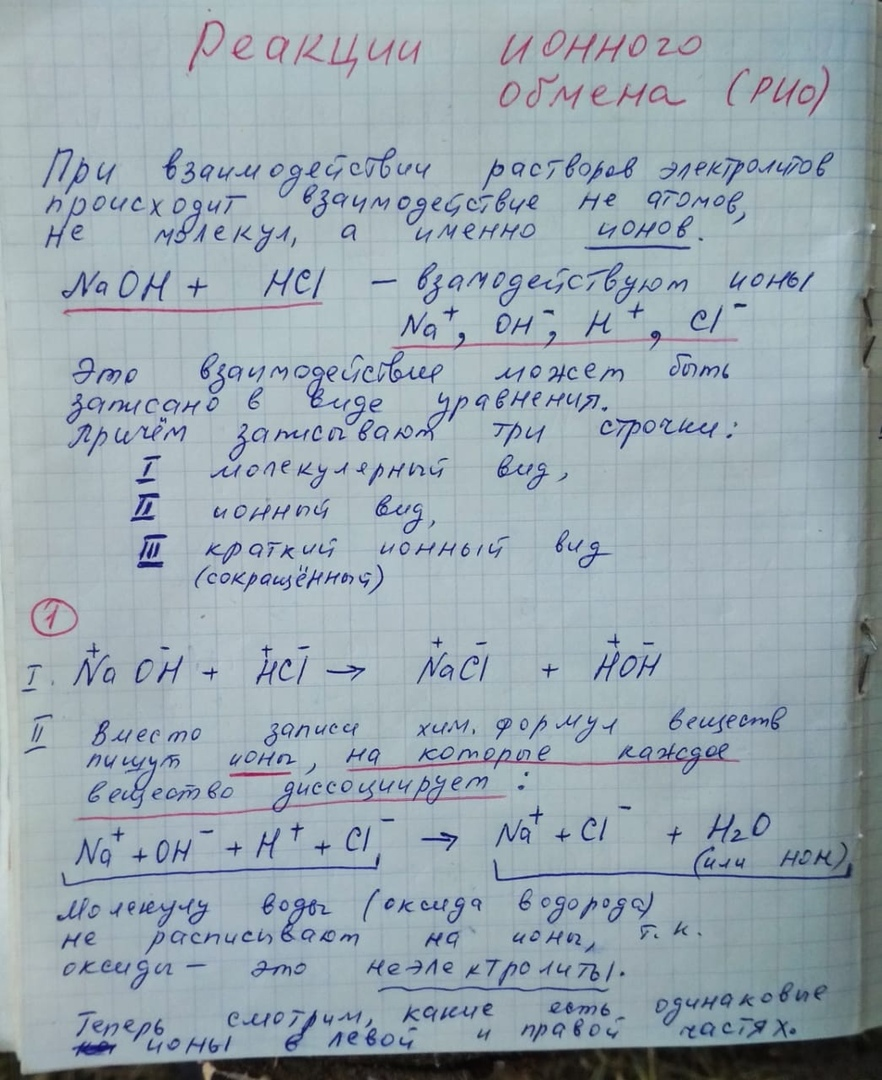 Реакции ионного
обмена (РИО)
При взаимодействии растворов электролитов
происходит взаимодействие не атомов,
не молекул, а именно ионов.
NaOH + HCl — взамодействуют ионы
Na⁺, OH⁻, H⁺, Cl⁻
Это взаимодействие может быть
записано в виде уравнения.
Причём записывают три строчки:
I молекулярный вид,
II ионный вид,
III краткий ионный вид
(сокращённый)
1
I. Na⁺OH⁻ + H⁺Cl⁻ → Na⁺Cl⁻ + H⁺OH⁻
II Вместо записи хим. формул веществ
пишут ионы, на которые каждое
вещество диссоциирует:
Na⁺ + OH⁻ + H⁺ + Cl⁻ → Na⁺ + Cl⁻ + H₂O
(или HOH)
Молекулу воды (оксида водорода)
не расписывают на ионы, т.к.
оксиды — это неэлектролиты.
Теперь смотрим, какие есть одинаковые
ионы в левой и правой частях.